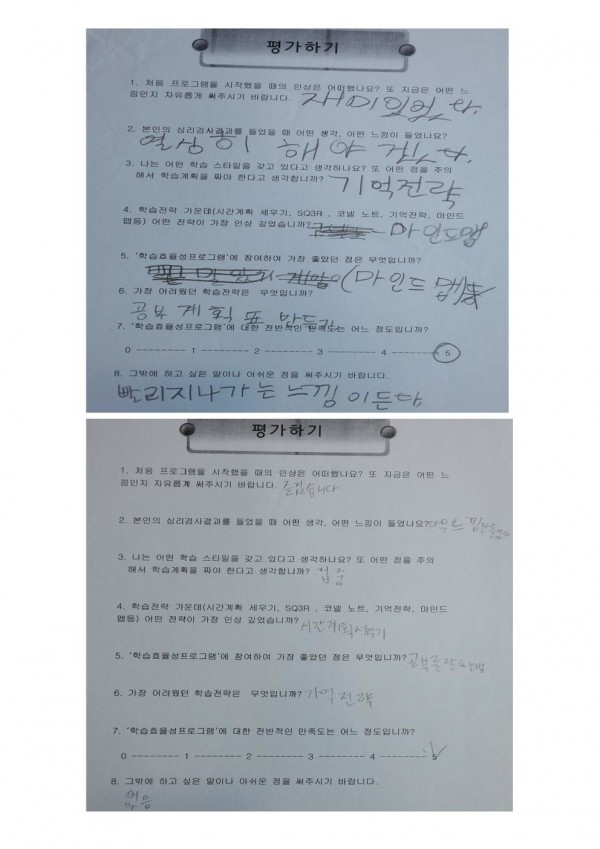 평가하기
1. 처음 프로그램을 시작했을 때의 인상은 어떠했나요? 또 지금은 어떤 느
낌인지 자유롭게 써주시기 바랍니다. 재미있었다.
2. 본인의 심리검사결과를 들었을 때 어떤 생각, 어떤 느낌이 들었나요?
열심히 해야 겠다.
3. 나는 어떤 학습 스타일을 갖고 있다고 생각하나요? 또 어떤 점을 주의
해서 학습계획을 짜야 한다고 생각합니까? 기억전략
4. 학습전략 가운데(시간계획 세우기, SQ3R , 코넬 노트, 기억전략, 마인드
맵등) 어떤 전략이 가장 인상 깊었습니까? 마인드맵
5. '학습효율성프로그램'에 참여하여 가장 좋았던 점은 무엇입니까?
(마인드 맵)
6. 가장 어려웠던 학습전략은 무엇입니까?
공부 계획 표 만들기
7. '학습효율성프로그램'에 대한 전반적인 만족도는 어느 정도입니까?
0 -------- 1 -------- 2 -------- 3 -------- 4 -------- 5
8. 그밖에 하고 싶은 말이나 아쉬운 점을 써주시기 바랍니다.
빨리지나가는 느낌 이든다
평가하기
1. 처음 프로그램을 시작했을 때의 인상은 어떠했나요? 또 지금은 어떤 느
낌인지 자유롭게 써주시기 바랍니다. 즐겁습니다
2. 본인의 심리검사결과를 들었을 때 어떤 생각, 어떤 느낌이 들었나요?
3. 나는 어떤 학습 스타일을 갖고 있다고 생각하나요? 또 어떤 점을 주의
해서 학습계획을 짜야 한다고 생각합니까? 집중
4. 학습전략 가운데(시간계획 세우기, SQ3R , 코넬 노트, 기억전략, 마인드
맵등) 어떤 전략이 가장 인상 깊었습니까? 시간계획세우기
5. '학습효율성프로그램'에 참여하여 가장 좋았던 점은 무엇입니까? 공부를잘하는법
6. 가장 어려웠던 학습전략은 무엇입니까? 기억전략
7. '학습효율성프로그램'에 대한 전반적인 만족도는 어느 정도입니까?
0 -------- 1 -------- 2 -------- 3 -------- 4 -------- 5
8. 그밖에 하고 싶은 말이나 아쉬운 점을 써주시기 바랍니다.
없음